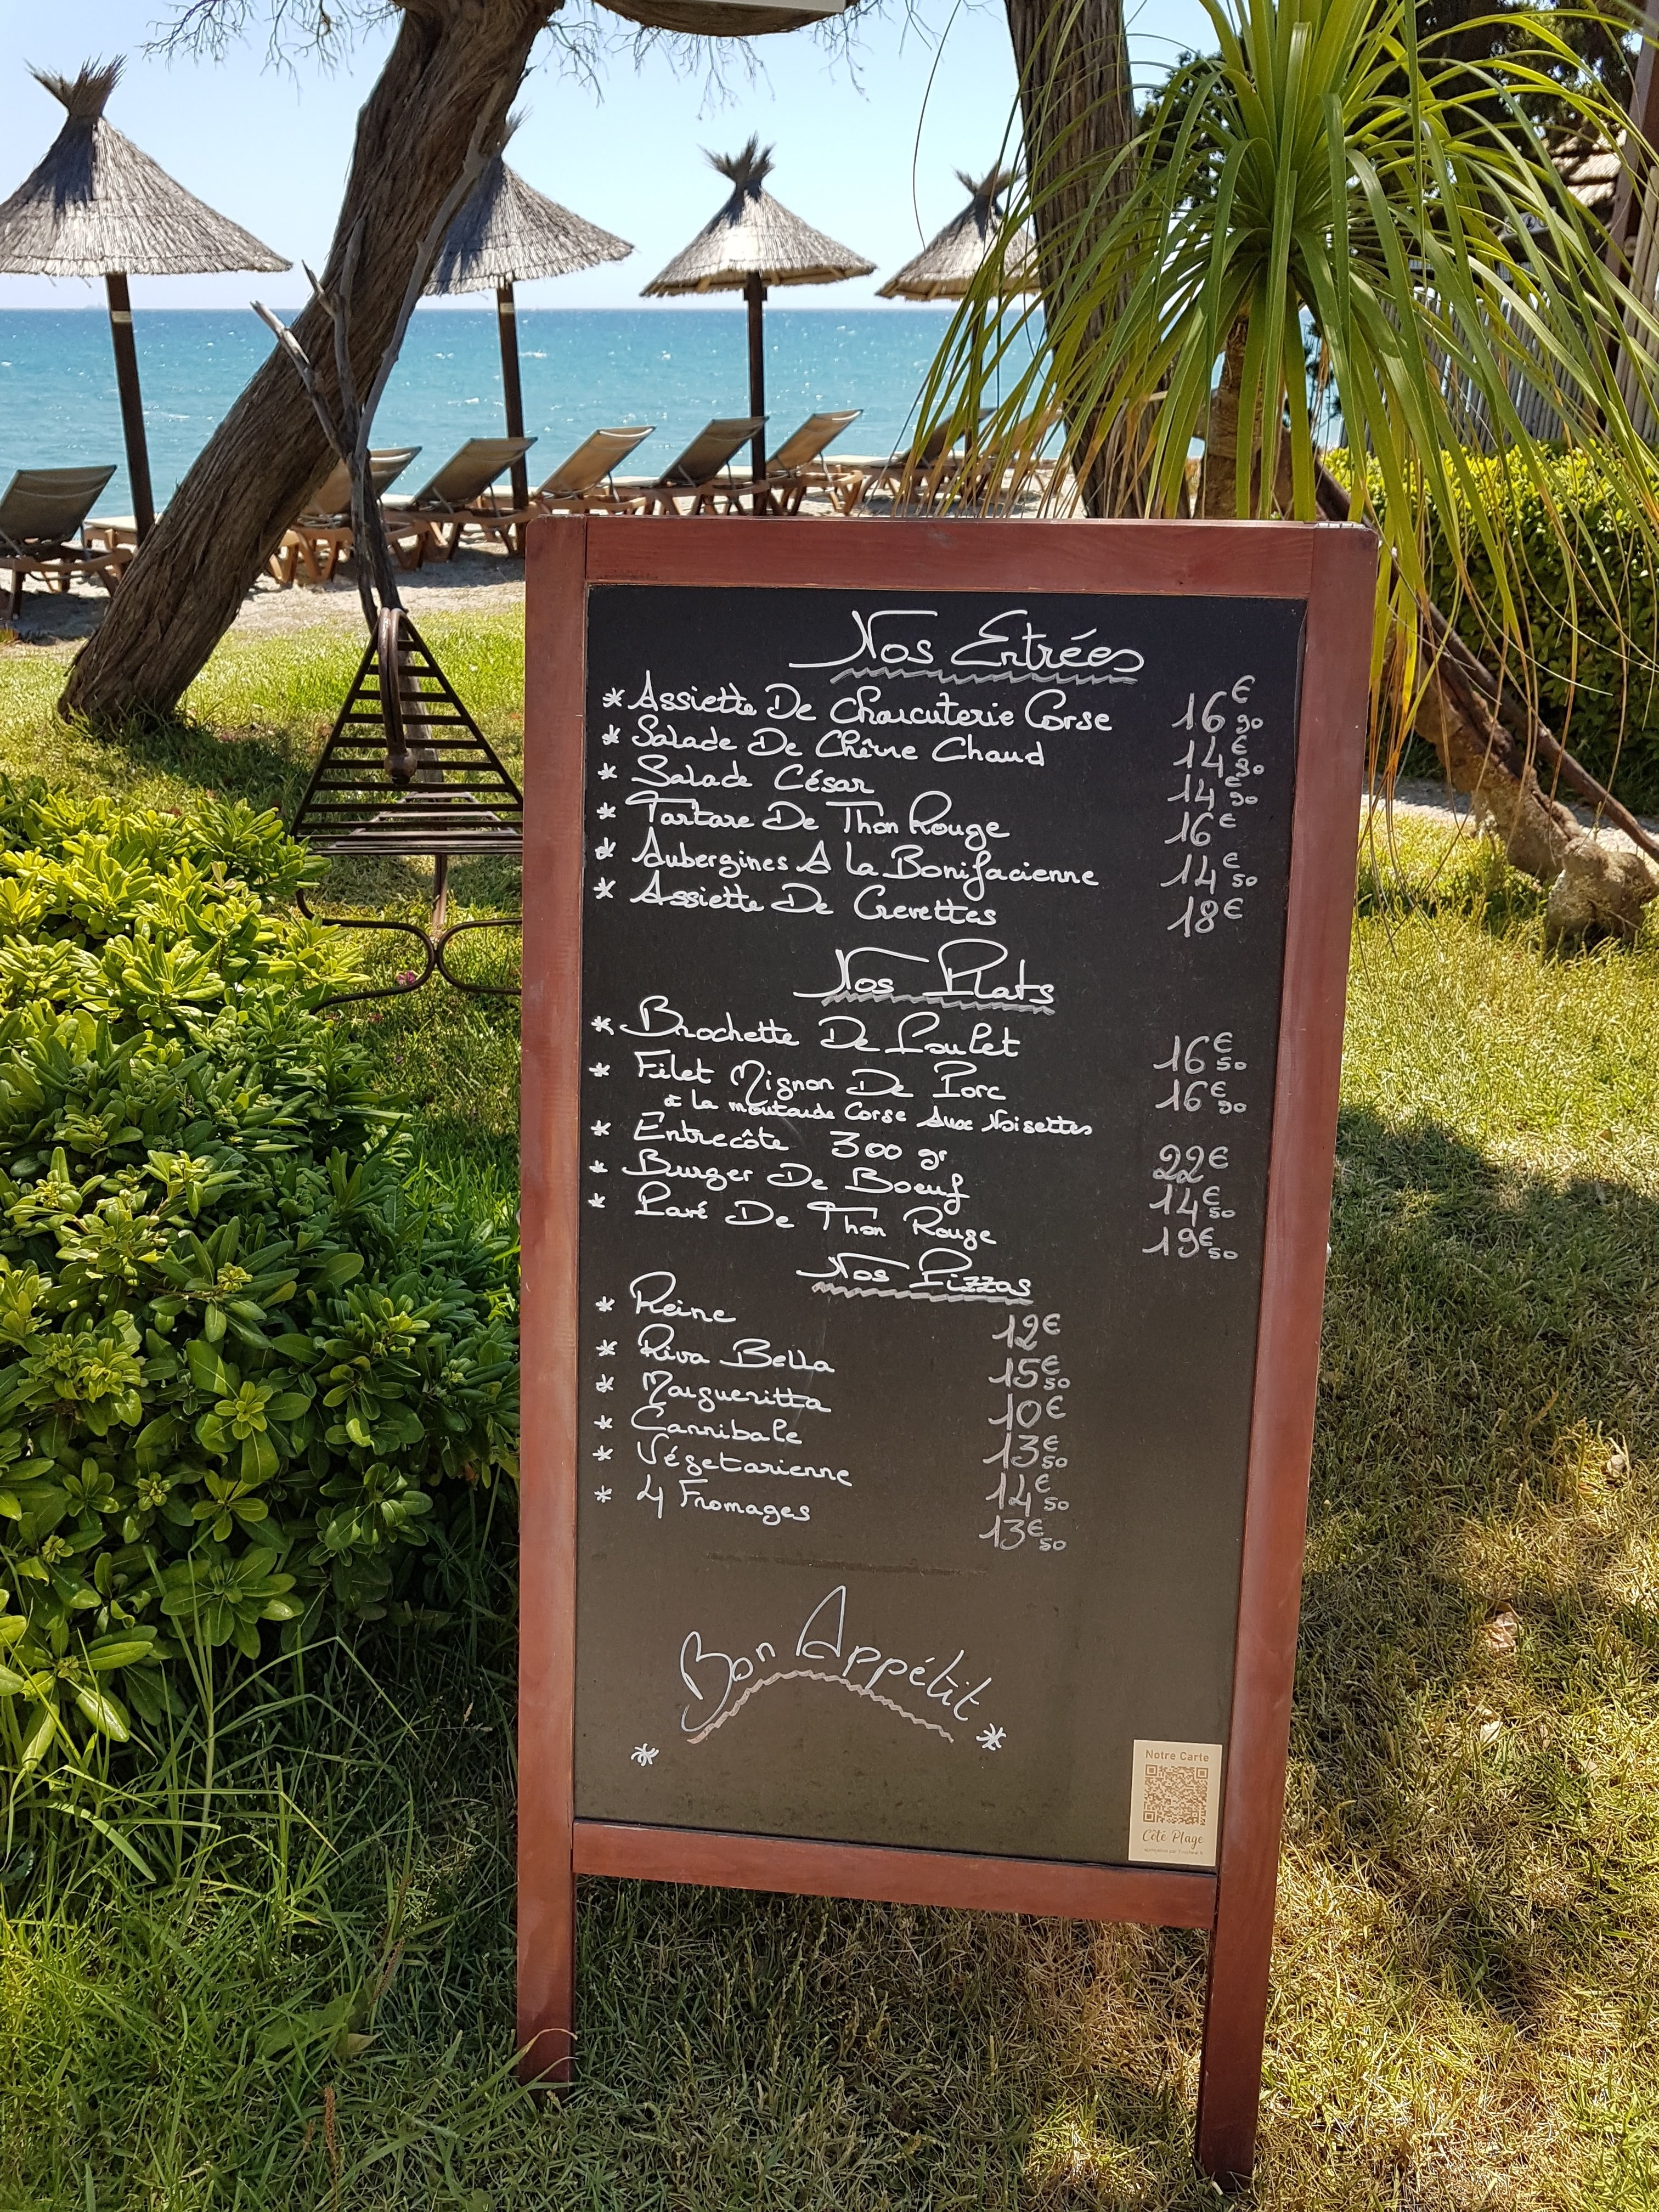 Nos Entrées
* Assiette De Charcuterie Corse 16€90
* Salade De Chèvre Chaud 14€90
* Salade César 14€90
* Tartare De Thon Rouge 16€
* Aubergines A la Bonifacienne 14€50
* Assiette De Crevettes 18€
Nos Plats
* Brochette De Poulet 16€50
* Filet Mignon De Porc 16€90
à la moutarde Corse Aux Noisettes
* Entrecôte 300 gr 22€
* Burger De Boeuf 14€50
* Pavé De Thon Rouge 19€50
Nos Pizzas
* Reine 12€
* Riva Bella 15€50
* Margueritta 10€
* Cannibale 13€50
* Végetarienne 14€50
* 4 Fromages 13€50
Bon Appétit
Notre Carte
Côté Plage